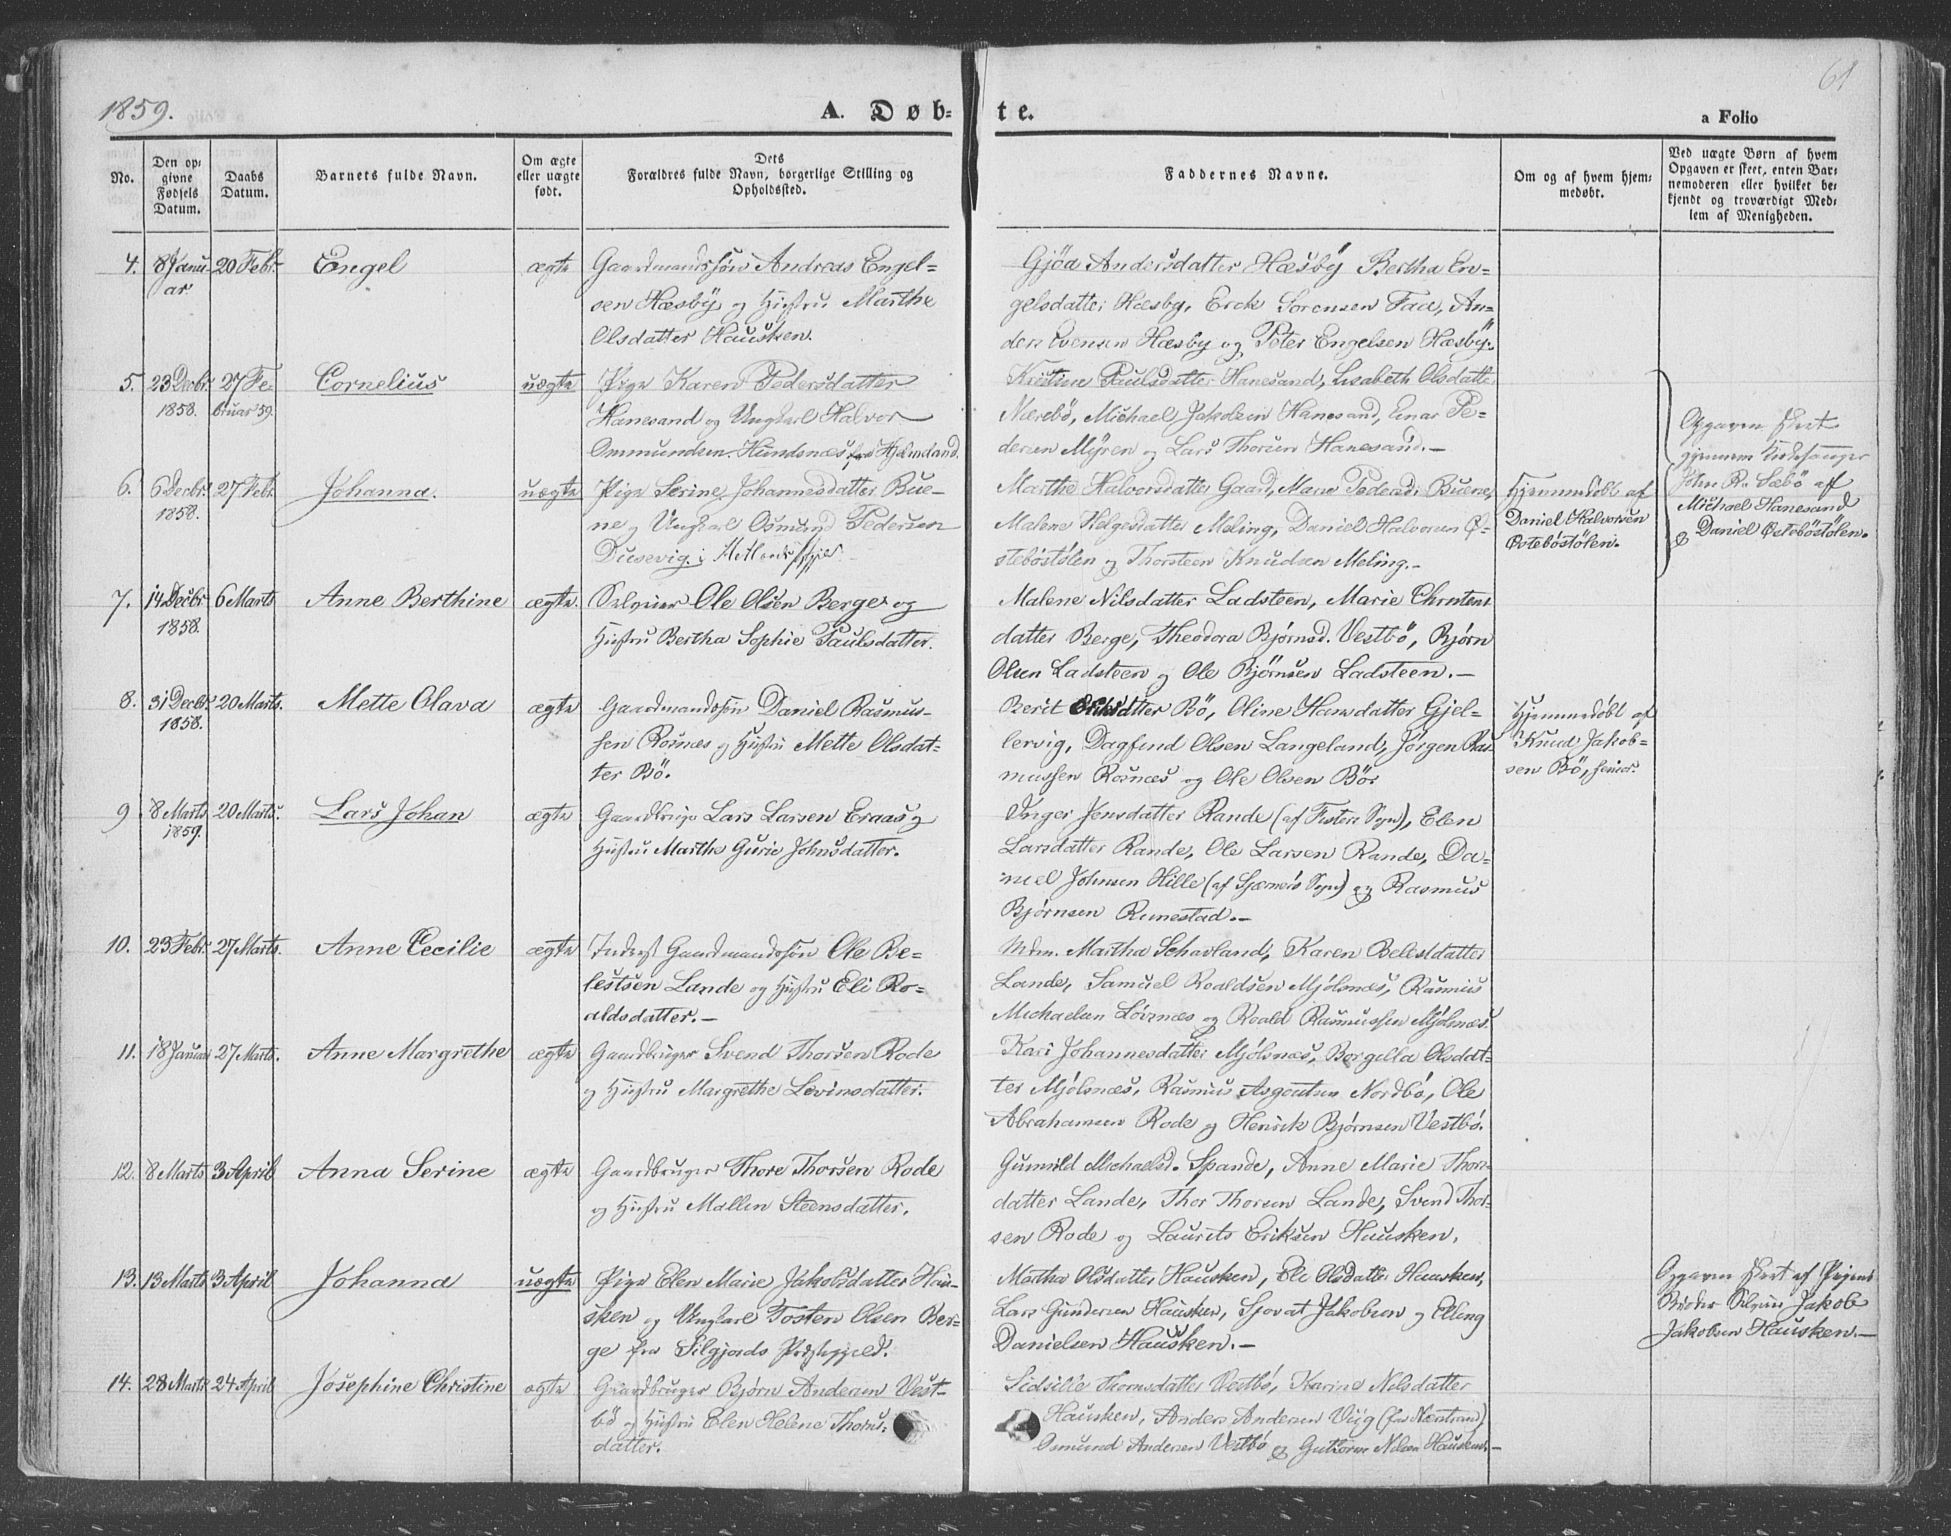 1859.
A. Døb-
te.
61
a Folio
No.
Den op-
givne
Fødsels
Datum.
Daabs
Datum.
Barnets fulde Navn.
Om ægte
eller uægte
født.
Dets
Forældres fulde Navn, borgerlige Stilling og
Opholdssted.
Faddernes Navne.
Om og af hvem hjem-
medøbt.
Ved uægte Børn af hvem
Opgaven er skeet, enten Bar-
nemoderen eller hvilket be-
kjendt og troværdigt Med-
lem af Menigheden.
4. 8 Janu- 20 Febr. Engel ægte Gaardmandssøn Andreas Engel=
ar.
sen Hæsbÿ og Hustru Marthe
Olsdatter Hausken.
Gjöa Andersdatter Hæsbÿ Bertha En=
gelsdatter Hæsby, Erck Sorensen Faa, An=
ders Evensen Hæsby og Peter Engelsen Hæsbÿ.
5. 23 Decbr. 27 Fe- Cornelius uægte Pige Karen Pedersdatter
1858. bruar 59.
Hanesand og Ungkarl Halvor
Ommundsen Hundsnæs fra Hjelmeland.
Kristine Paulsdatter Hanesand, Lisabeth Olsdatter
Nærebö, Michael Jakobsen Hanesand, Einar Pe=
dersen Mÿren og Lars Thorsen Hanesand.—
Opgaven skeet
gjennem Kirkesanger
John R. Sæbö af
Michael Hanesand
& Daniel Östeböstölen.
6. 6 Decbr. 27 Febr. Johanna. uægte Pige Serine Johannesdatter Bue=
1858.
ne og Ungkarl Osmund Pedersen
Dusevig i
Marthe Halvorsdatter Gaard, Maren Pedersd. Buene,
Malene Helgesdatter Meling, Daniel Halvorsen Ö=
steböstölen og Thorsteen Knudsen Meling.—
Hjemmedöbt af
Daniel Halvorsen
Östeböstölen.
7. 14 Decbr. 6 Marts Anne Berthine ægte Selveier Ole Olsen Berge og
1858.
Hustru Bertha Sophie Paulsdatter.
Malene Nilsdatter Ladsteen, Marie Christens
datter Berge, Theodora Bjørnsd. Vestbö, Bjørn
Olsen Ladsteen og Ole Bjørnsen Ladsteen.—
8. 31 Decbr. 20 Marts. Mette Olava ægte Gaardmandssøn Daniel Rasmus=
1858.
sen Rosnæs og Hustru Mette Olsdat=
ter Bö.
Berit datter Bö, Oline Hansdatter Gjel=
lervig, Dagfind Olsen Langeland, Jørgen Ras
mussen Rosnæs og Ole Olsen Bör
Hjemmedöbt af
Knud Jakob=
sen Bö, senior.
9 8 Marts 20 Marts. Lars Johan ægte Gaardbruger Lars Larsen Eraas og
1859.
Hustru Marthe Gurie Johnsdatter.
Inger Jensdatter Rande (af Fisters Sogn), Elen
Larsdatter Rande, Ole Larsen Rande, Da=
niel Johnsen Hille (af Sjærnerö Sogn) og Rasmus
Bjørnsen Runestad.—
10. 23 Febr. 27 Marts. Anne Cecilie ægte Inderst Gaardmandssøn Ole Be=
lestsen Lande og Hustru Eli Ro=
aldsdatter.—
Mdm. Martha Schavland, Karen Belestdatter
Lande, Samuel Roaldsen Mjölsnæs, Rasmus
Michaelsen Lövsnæs og Roald Rasmussen Mjölsnæs.
11. 18 Januar 27 Marts. Anne Margrethe ægte Gaardbruger Svend Thorsen Rode
og Hustru Margrethe Levinsdatter.
Kari Johannesdatter Mjölsnæs, Borgella Olsdat=
ter Mjölsnæs, Rasmus Asgoutsen Nordbö, Ole
Abrahamsen Rode og Henrik Bjørnsen Vestbö.
12. 8 Marts 3 April Anna Serine ægte Gaardbruger Thore Thorsen Rode
og Hustru Mallen Steensdatter.
Gunnild Michaelsd. Spande, Anne Marie Thors=
datter Lande, Thor Thorsen Lande, Svend Thor=
sen Rode og Laurits Eriksen Hausken.
13. 13 Marts 3 April Johanna uægte Pige Elen Marie Jakobsdatter Hau=
sken og Ungkarl Tosten Olsen Ber=
ge fra Silgjords Præstegjeld.
Martha Olsdatter Hausken, Eli Olsdatter Hausken,
Lars Gundersen Hausken, Sjovat Jakobsen og Elling
Danielsen Hausken.—
Opgaven skeet af Pigens
Broder Jakob
Jakobsen Hausken.—
14. 28 Marts 24 April Josephine Christine ægte Gaardbruger Bjørn Andersen Vest=
bö og Hustru Elen Helene Thorns=
datter.
Sidsille Thornsdatter Vestbö, Karine Nilsdatter
Hausken, Anders Andersen Viig (fra Nærstrand)
Osmund Andersen Vestbö og Guttorm Nilsen Hausken.—